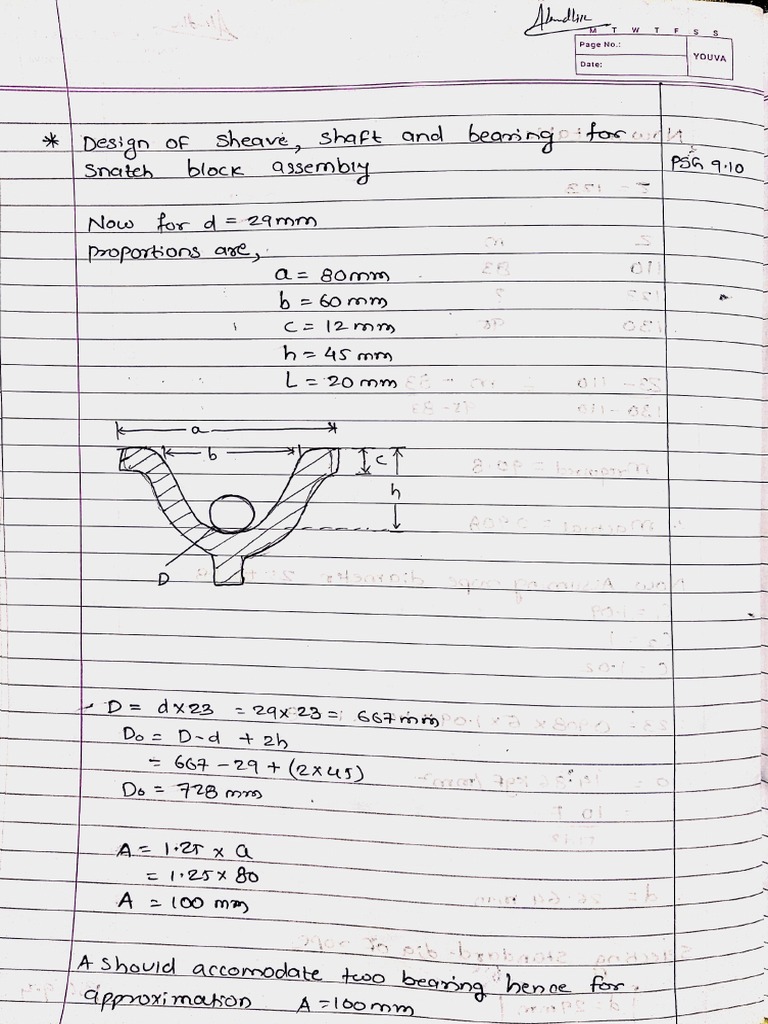 M T W T F S S
Page No.:
Date:
YOUVA
* Design of sheave, shaft and bearing for
snatch block assembly
PSG 9.10
Now for d = 29mm
proportions are,
a = 80mm
b = 60mm
c = 12mm
h = 45 mm
L = 20mm
a
b
c
h
D
D = d×23 = 29×23 = 667mm
Do = D-d + 2h
= 667 - 29 + (2×45)
Do = 728 mm
A = 1.25 × a
= 1.25 × 80
A = 100 mm
A should accomodate two bearing hence for
approximation A = 100mm